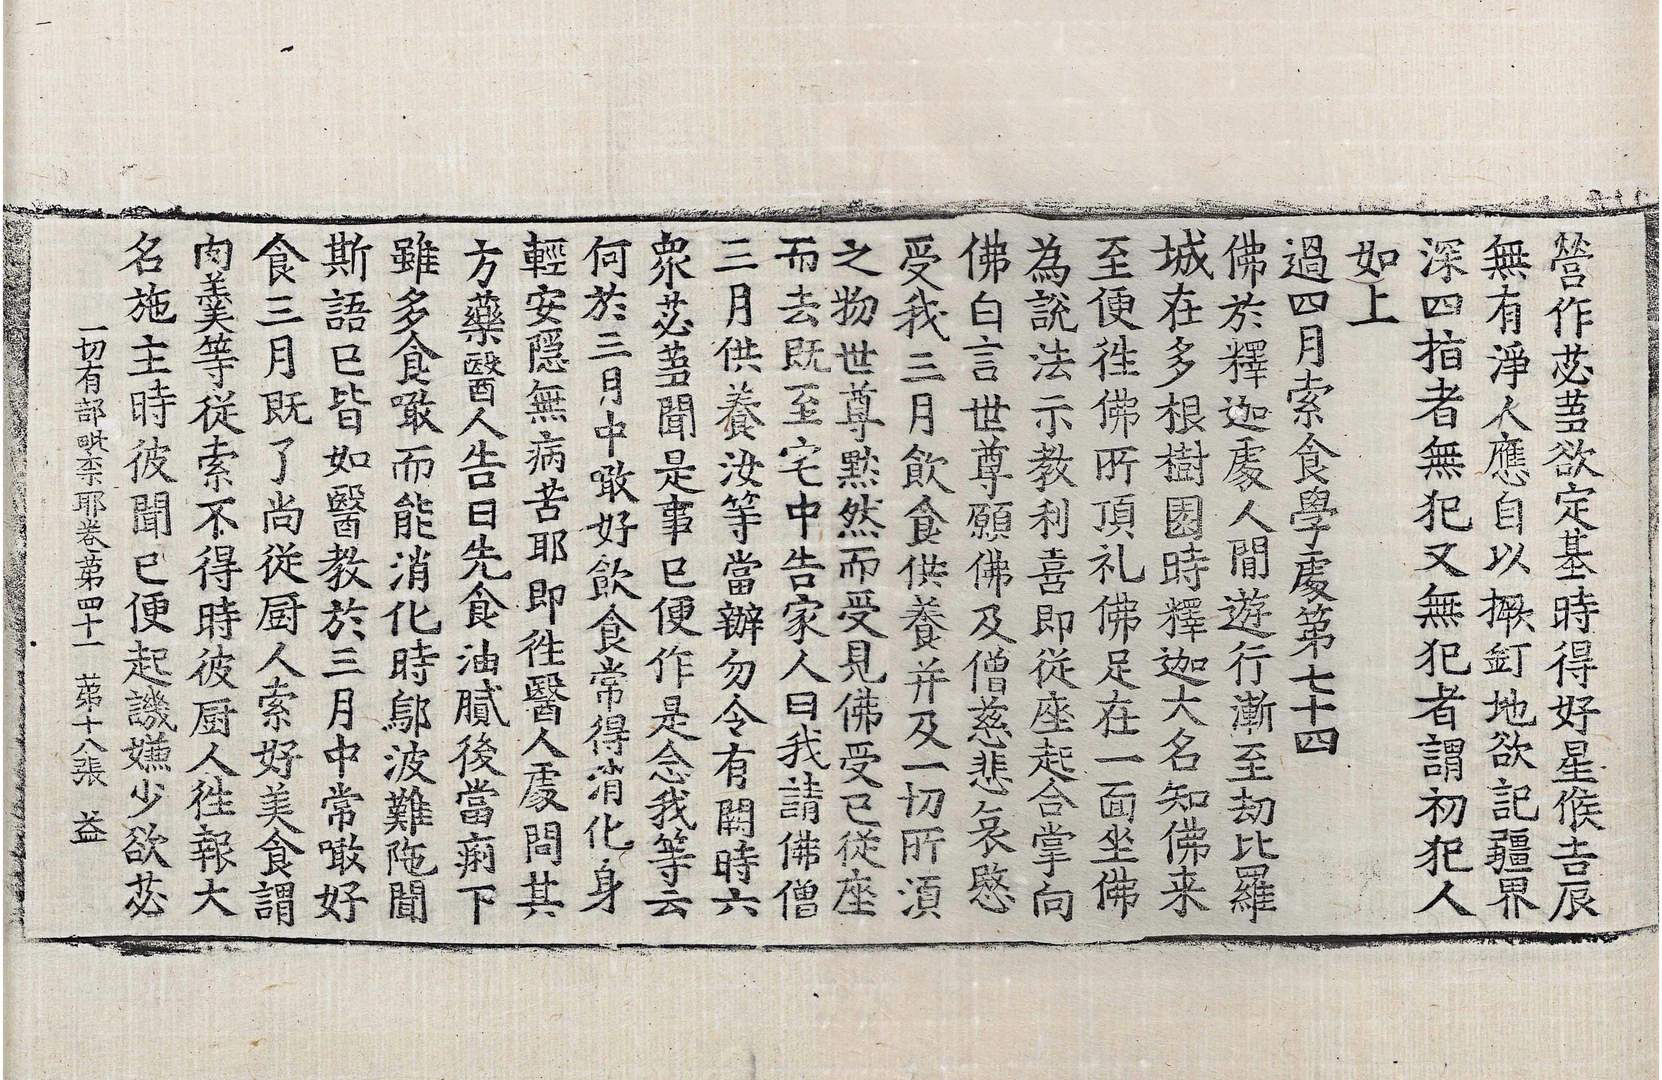 營作苾蒭欲定基時得好星候吉辰
無有淨人應自以撅釘地欲記疆界
深四指者無犯又無犯者謂初犯人
如上
過四月索食學處第七十四
佛於釋迦處人間遊行漸至劫比羅
城在多根樹園時釋迦大名知佛来
至便徃佛所頂礼佛足在一面坐佛
為說法示教利喜即従座起合掌向
佛白言世尊願佛及僧慈悲哀愍
受我三月飲食供養并及一切所須
之物世尊黙然而受見佛受已従座
而去既至宅中告家人曰我請佛僧
三月供養汝等當辦勿令有闕時六
衆苾蒭聞是事已便作是念我等云
何於三月中噉好飲食常得消化身
輕安隱無病苦耶即徃醫人處問其
方藥醫人告曰先食油膩後當痢下
雖多食噉而能消化時鄔波難陁聞
斯語已皆如醫教於三月中常噉好
食三月既了尚従厨人索好美食謂
肉羹等従索不得時彼厨人徃報大
名施主時彼聞已便起譏嫌少欲苾
一切有部毗柰耶卷第四十一　苐十八張　益